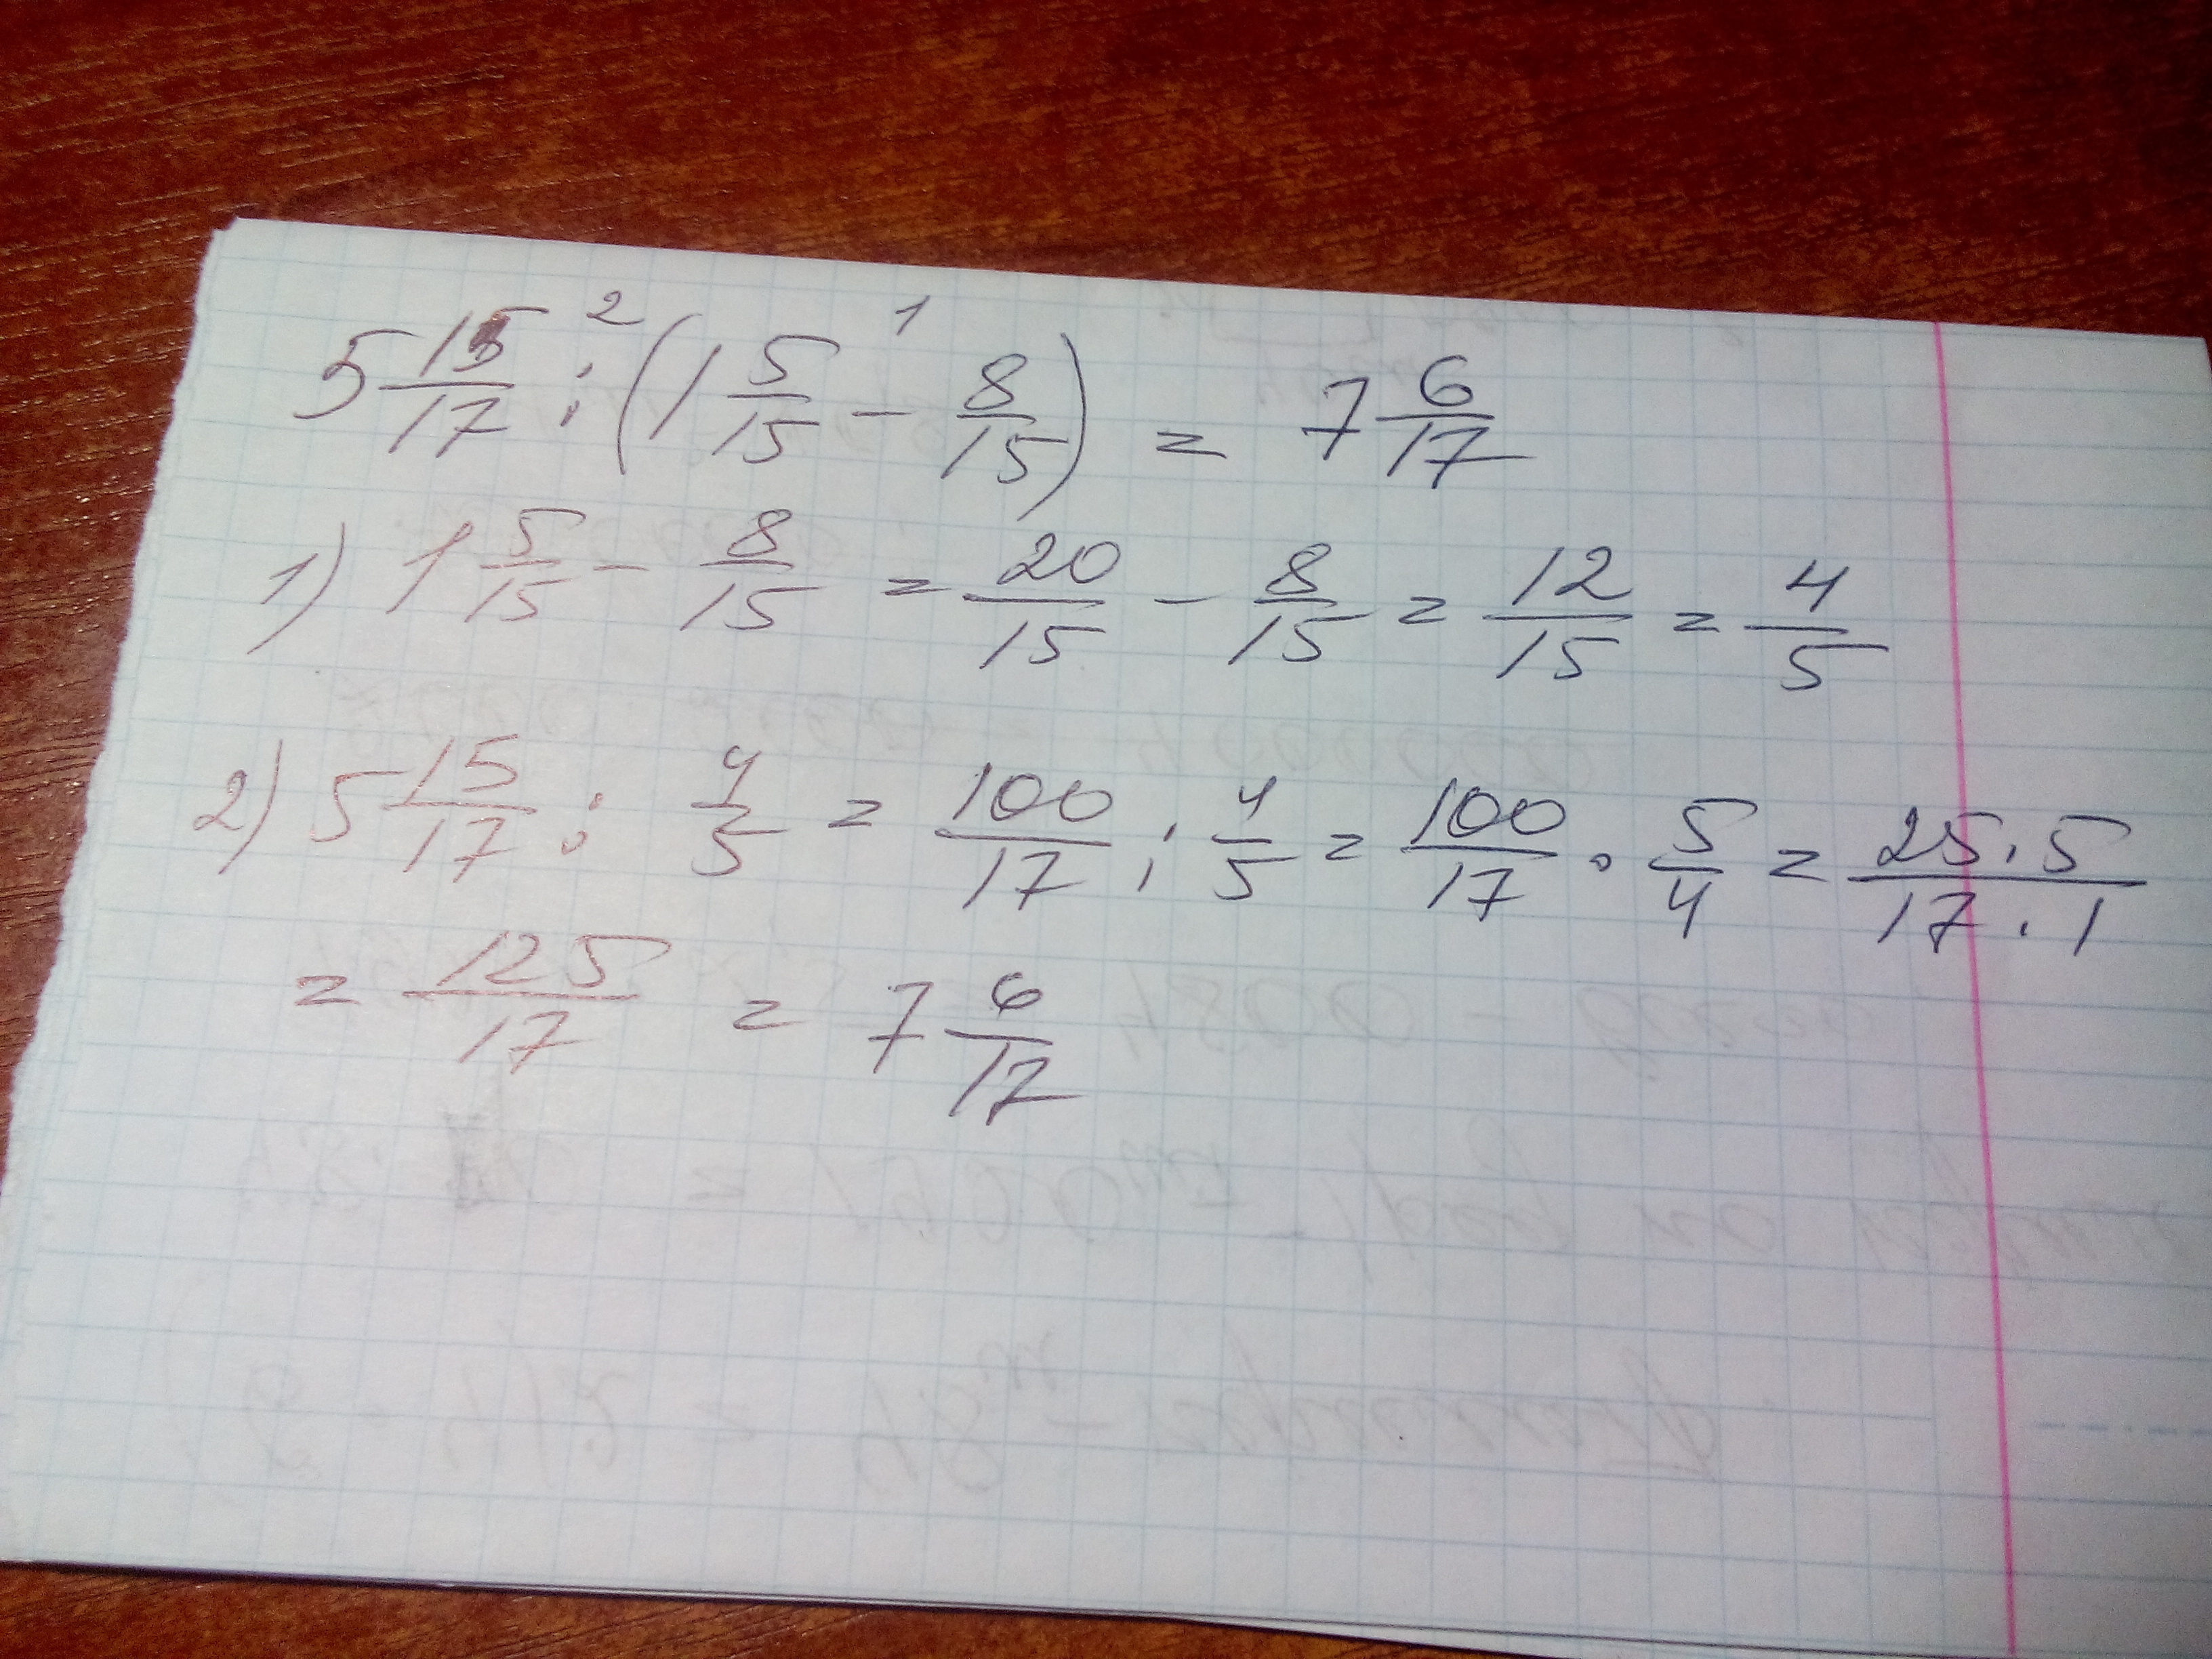 5 15/17 : (1 5/15 - 8/15) = 7 6/17
1) 1 5/15 - 8/15 = 20/15 - 8/15 = 12/15 = 4/5
2) 5 15/17 : 4/5 = 100/17 : 4/5 = 100/17 · 5/4 = 25·5/17·1
= 125/17 = 7 6/17